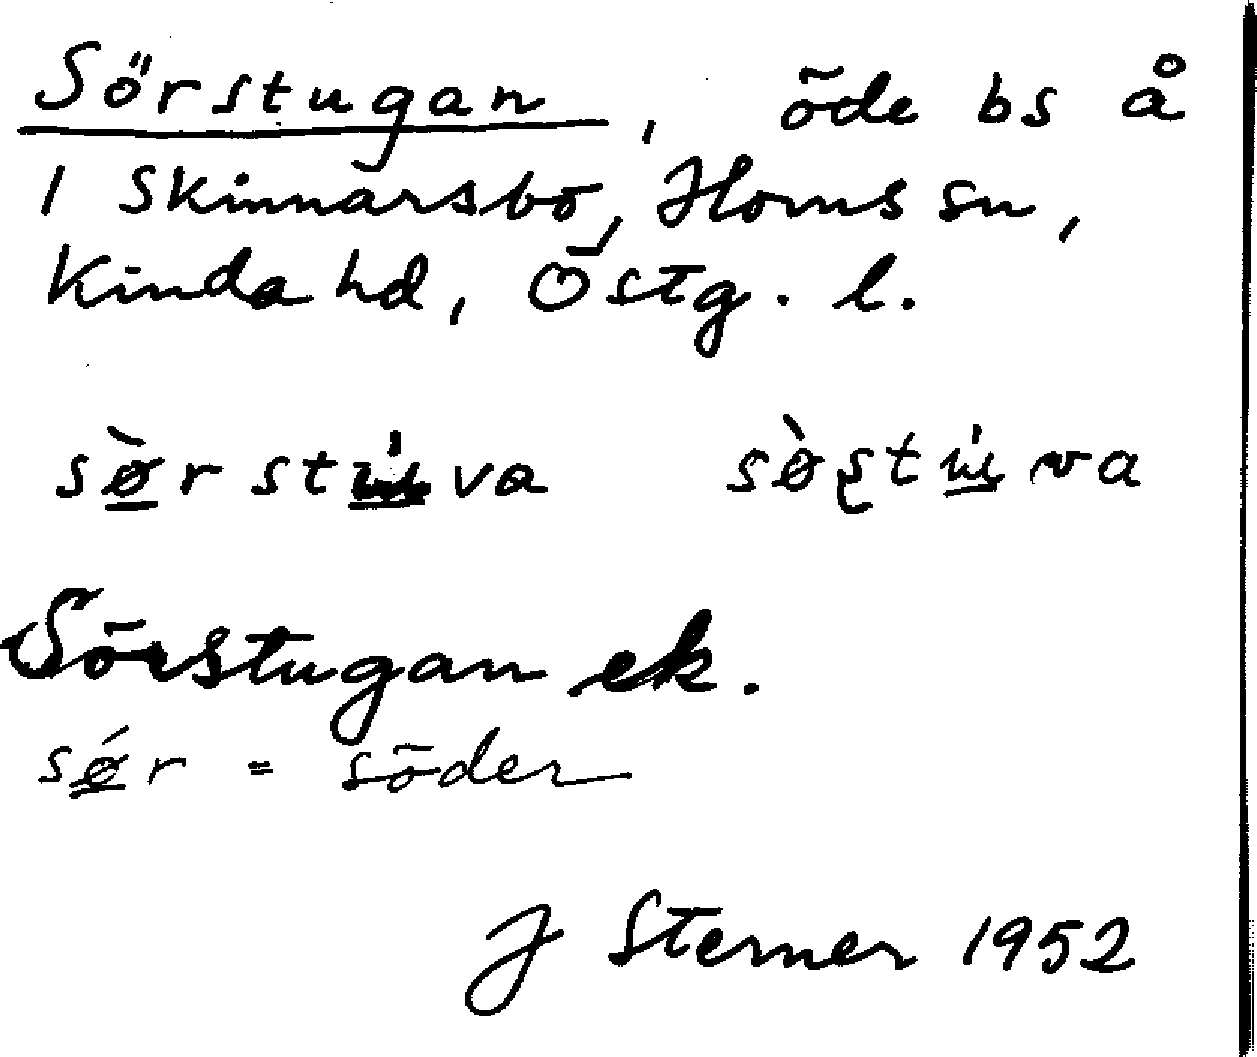 Sörstugan, öde bs å
1 Skinnarsbo, Horns sn,
Kinda hd, Östg. l.
sø̀rstu̇́va sø̀ʂtu̇́va
Sörstugan ek.
sǿr = söder
J Sterner 1952